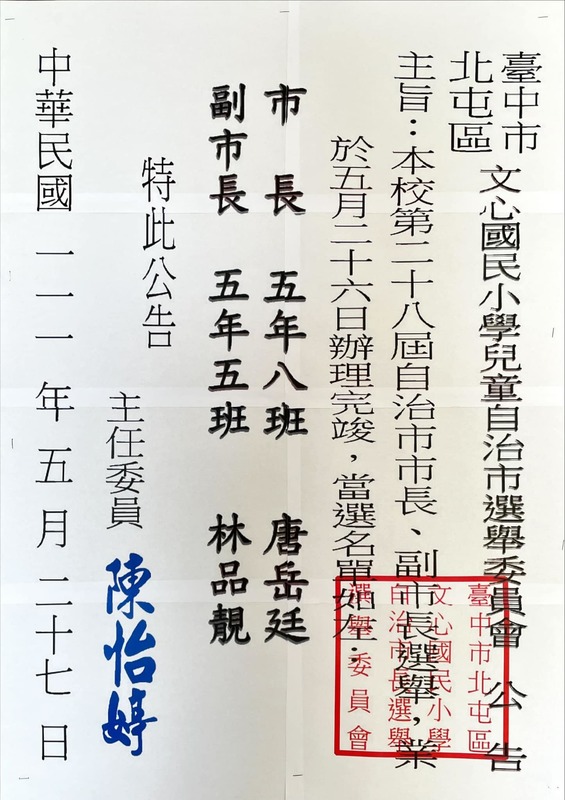 臺中市
北屯區
文心國民小學兒童自治市選舉委員會 公告
主旨：本校第二十八屆自治市市長、副市長選舉，業
於五月二十六日辦理完竣，當選名單如左：
市長 五年八班 唐岳廷
副市長 五年五班 林品靚
特此公告
主任委員 陳怡婷
中華民國 一一一 年 五 月 二十七 日
臺中市北屯區
文心國民小學
自治市長選舉
選舉委員會